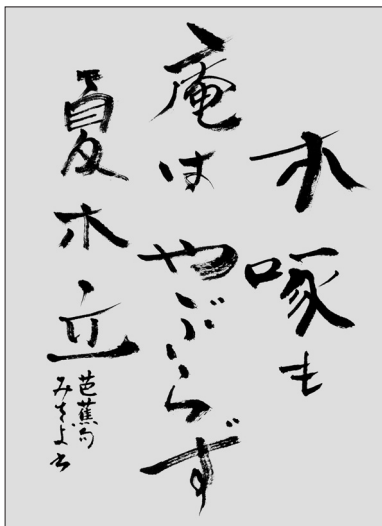 木啄も
庵は やぶらず
夏木立
芭蕉句
みさよ書